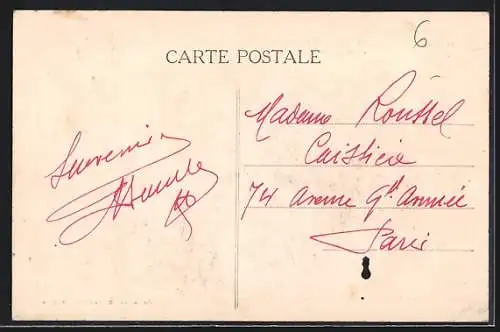 6
CARTE POSTALE
Souvenir
Madame Roussel
Caissière
74 Avenue Gde Armée
Paris